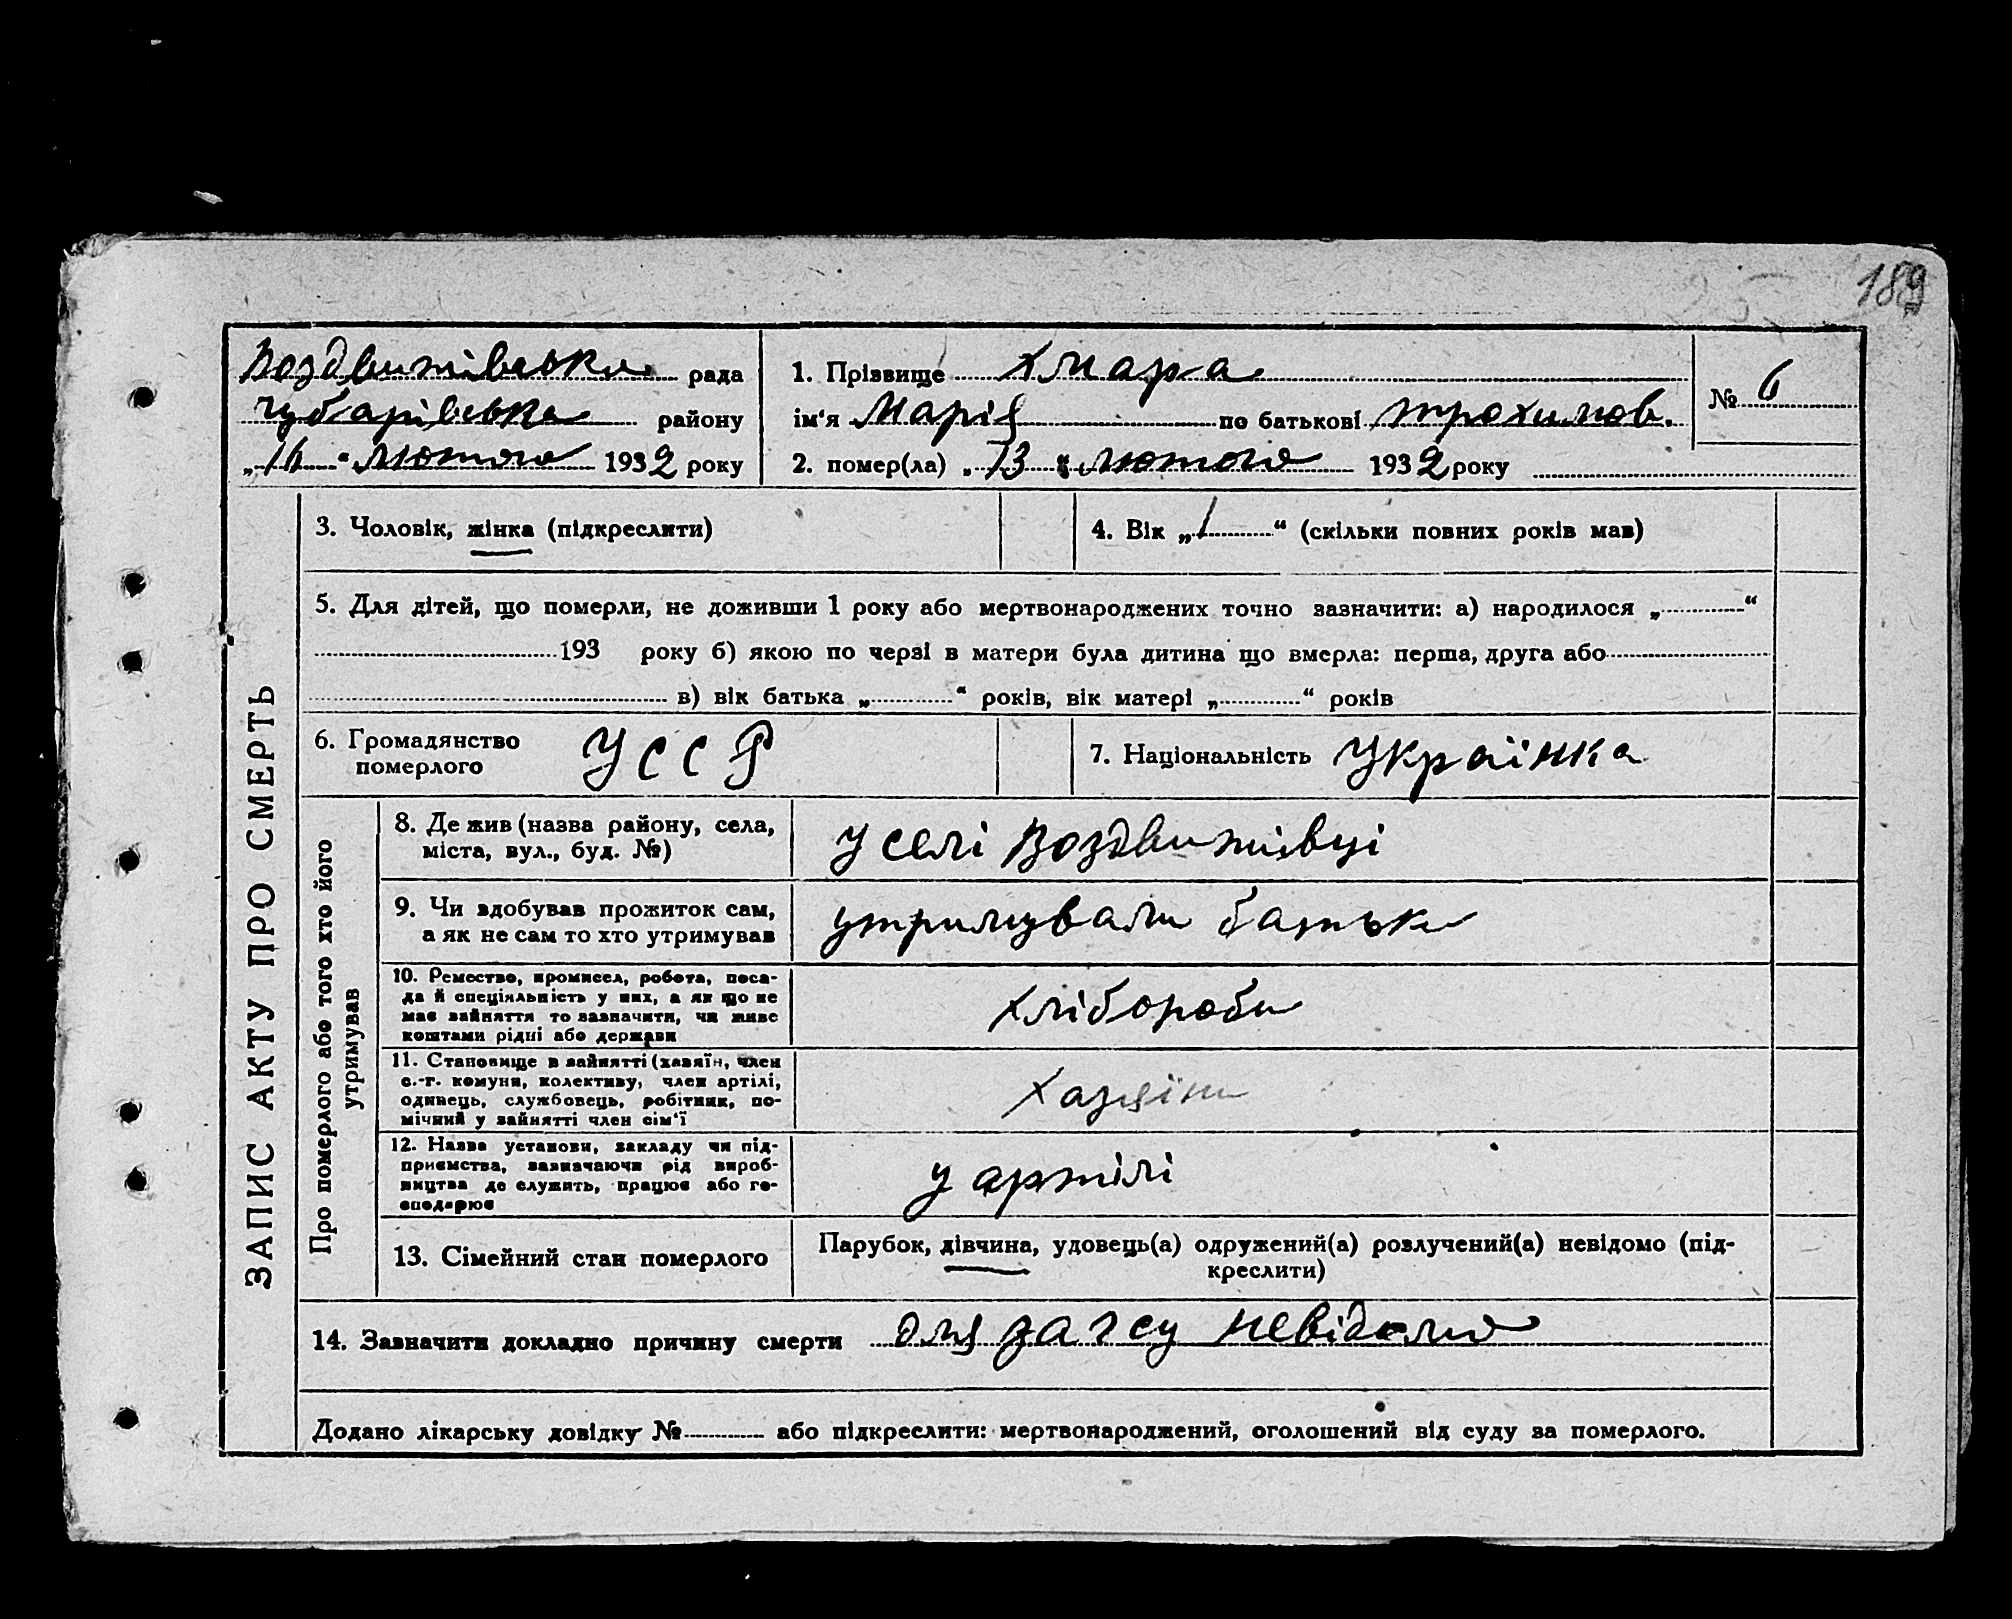 189
Воздвижівська рада
Чубарівська району
„16“ лютого 1932 року
1. Прізвище Хмара
ім‘я Марія по батькові трохимов.
2. помер(ла) „13“ лютого 1932 року
№ 6
ЗАПИС АКТУ ПРО СМЕРТЬ
3. Чоловік, жінка (підкреслити)
4. Вік „1“ (скільки повних років мав)
5. Для дітей, що померли, не доживши 1 року або мертвонароджених точно зазначити: а) народилося „ “
193 року б) якою по черзі в матери була дитина що вмерла: перша, друга або
в) вік батька „ “ років, вік матері „ “ років
6. Громадянство
померлого
УССР
7. Національність Українка
Про померлого або того хто його
утримував
8. Де жив (назва району, села,
міста, вул., буд. №)
У селі Воздвижівці
9. Чи здобував прожиток сам,
а як не сам то хто утримував
утримували батьки
10. Ремество, промисел, робота, поса-
да й спеціяльність у них, а як що не
має зайняття то зазначити, чи живе
коштами рідні або держави
хлібороби
11. Становище в зайнятті (хазяїн, член
с.-г. комуни, колективу, член артілі,
одинець, службовець, робітник, по-
мічний у зайнятті член сім‘ї
Хазяїни
12. Назва установи, закладу чи під-
приємства, зазначаючи рід вироб-
ництва де служить, працює або го-
сподарює
у артілі
13. Сімейний стан померлого
Парубок, дівчина, удовець(а) одружений(а) розлучений(а) невідомо (під-
креслити)
14. Зазначити докладно причину смерти для загсу невідомо
Додано лікарську довідку № або підкреслити: мертвонароджений, оголошений від суду за померлого.